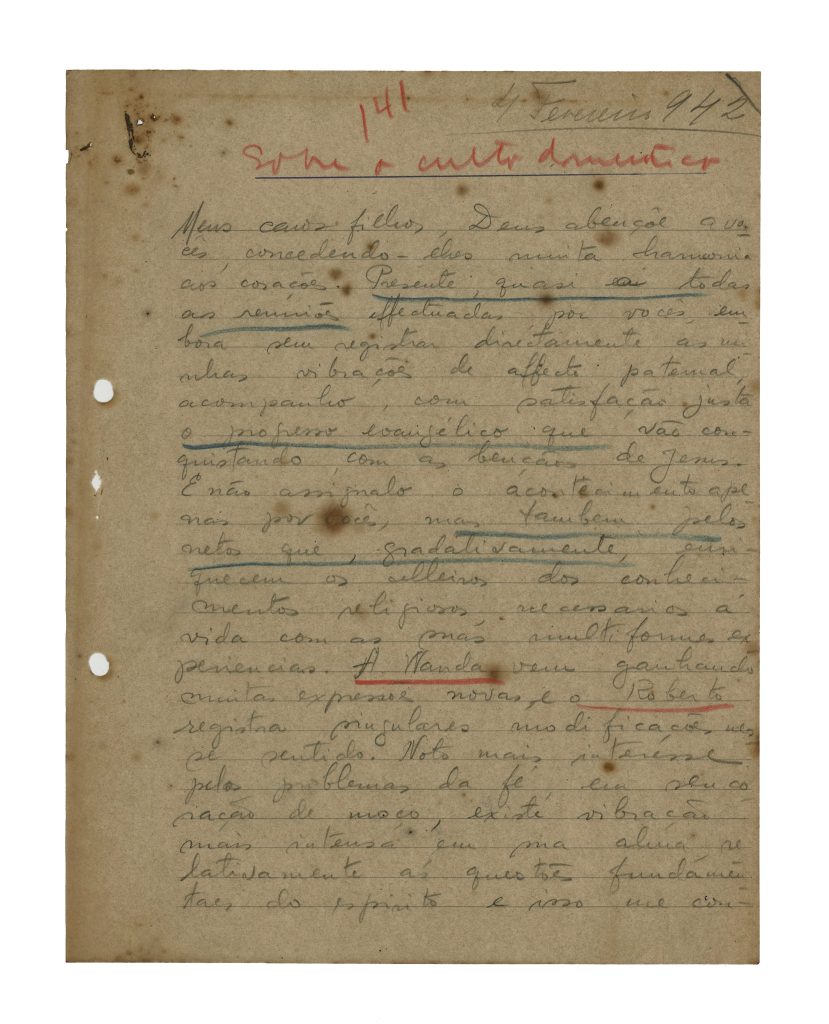 141
4 Fevereiro 942
Sobre o culto domestico
Meus caros filhos, Deus abençôe a vo-
cês, concedendo-lhes muita harmonia
aos corações. Presente, quasi a todas
as reuniões effectuadas por vocês, em-
bora sem registrar directamente as mi-
nhas vibrações de affecto paternal,
acompanho, com satisfação justa
o progresso evangélico que vão con-
quistando com as bençãos de Jesus.
E não assignalo o acontecimento ape-
nas por vocês, mas tambem pelos
netos que, gradativamente, enri-
quecem os celleiros dos conheci-
mentos religiosos, necessarios á
vida com as suas multiformes ex
periencias. A Wanda vem ganhando
muitas expressões novas, e o Roberto
registra singulares modificações nes
se sentido. Noto mais interesse
pelos problemas da fé, em seu co
ração de moço, existe vibração
mais intensa em sua alma, re
lativamente ás questões fundamen
taes do espirito e isso me con-